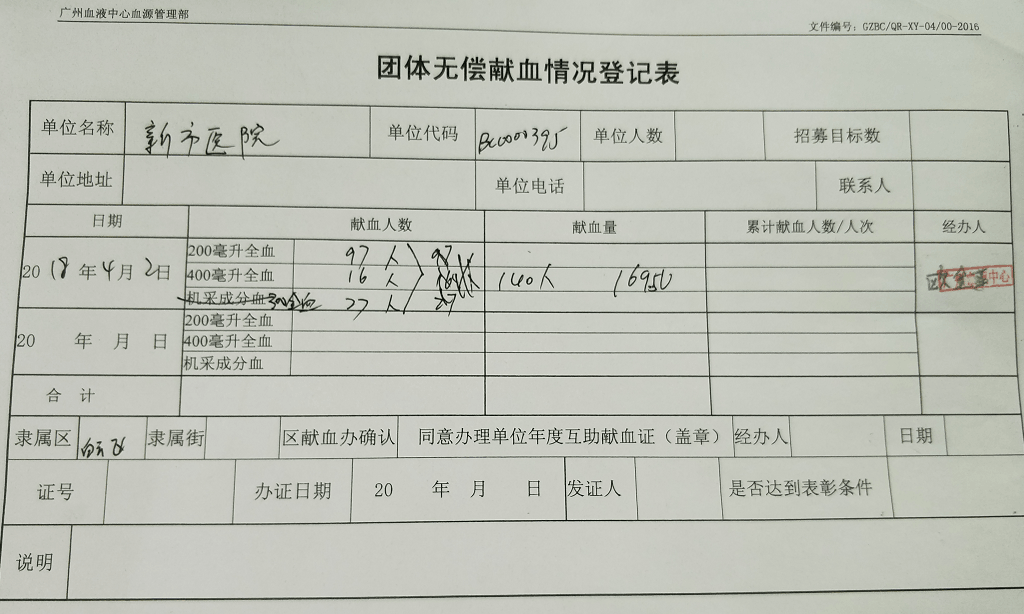 广州血液中心血源管理部
文件编号：GZBC/QR-XY-04/00-2016
团体无偿献血情况登记表
单位名称 新市医院 单位代码 单位人数 招募目标数
单位地址 单位电话 联系人
日期 献血人数 献血量 累计献血人数/人次 经办人
200毫升全血 97人
2018年4月2日 400毫升全血 16人 140人 16950
机采成分血 300全血 27人 27
200毫升全血
20 年 月 日 400毫升全血
机采成分血
合 计
隶属区 白云区 隶属街 区献血办确认 同意办理单位年度互助献血证（盖章） 经办人 日期
证号 办证日期 20 年 月 日 发证人 是否达到表彰条件
说明